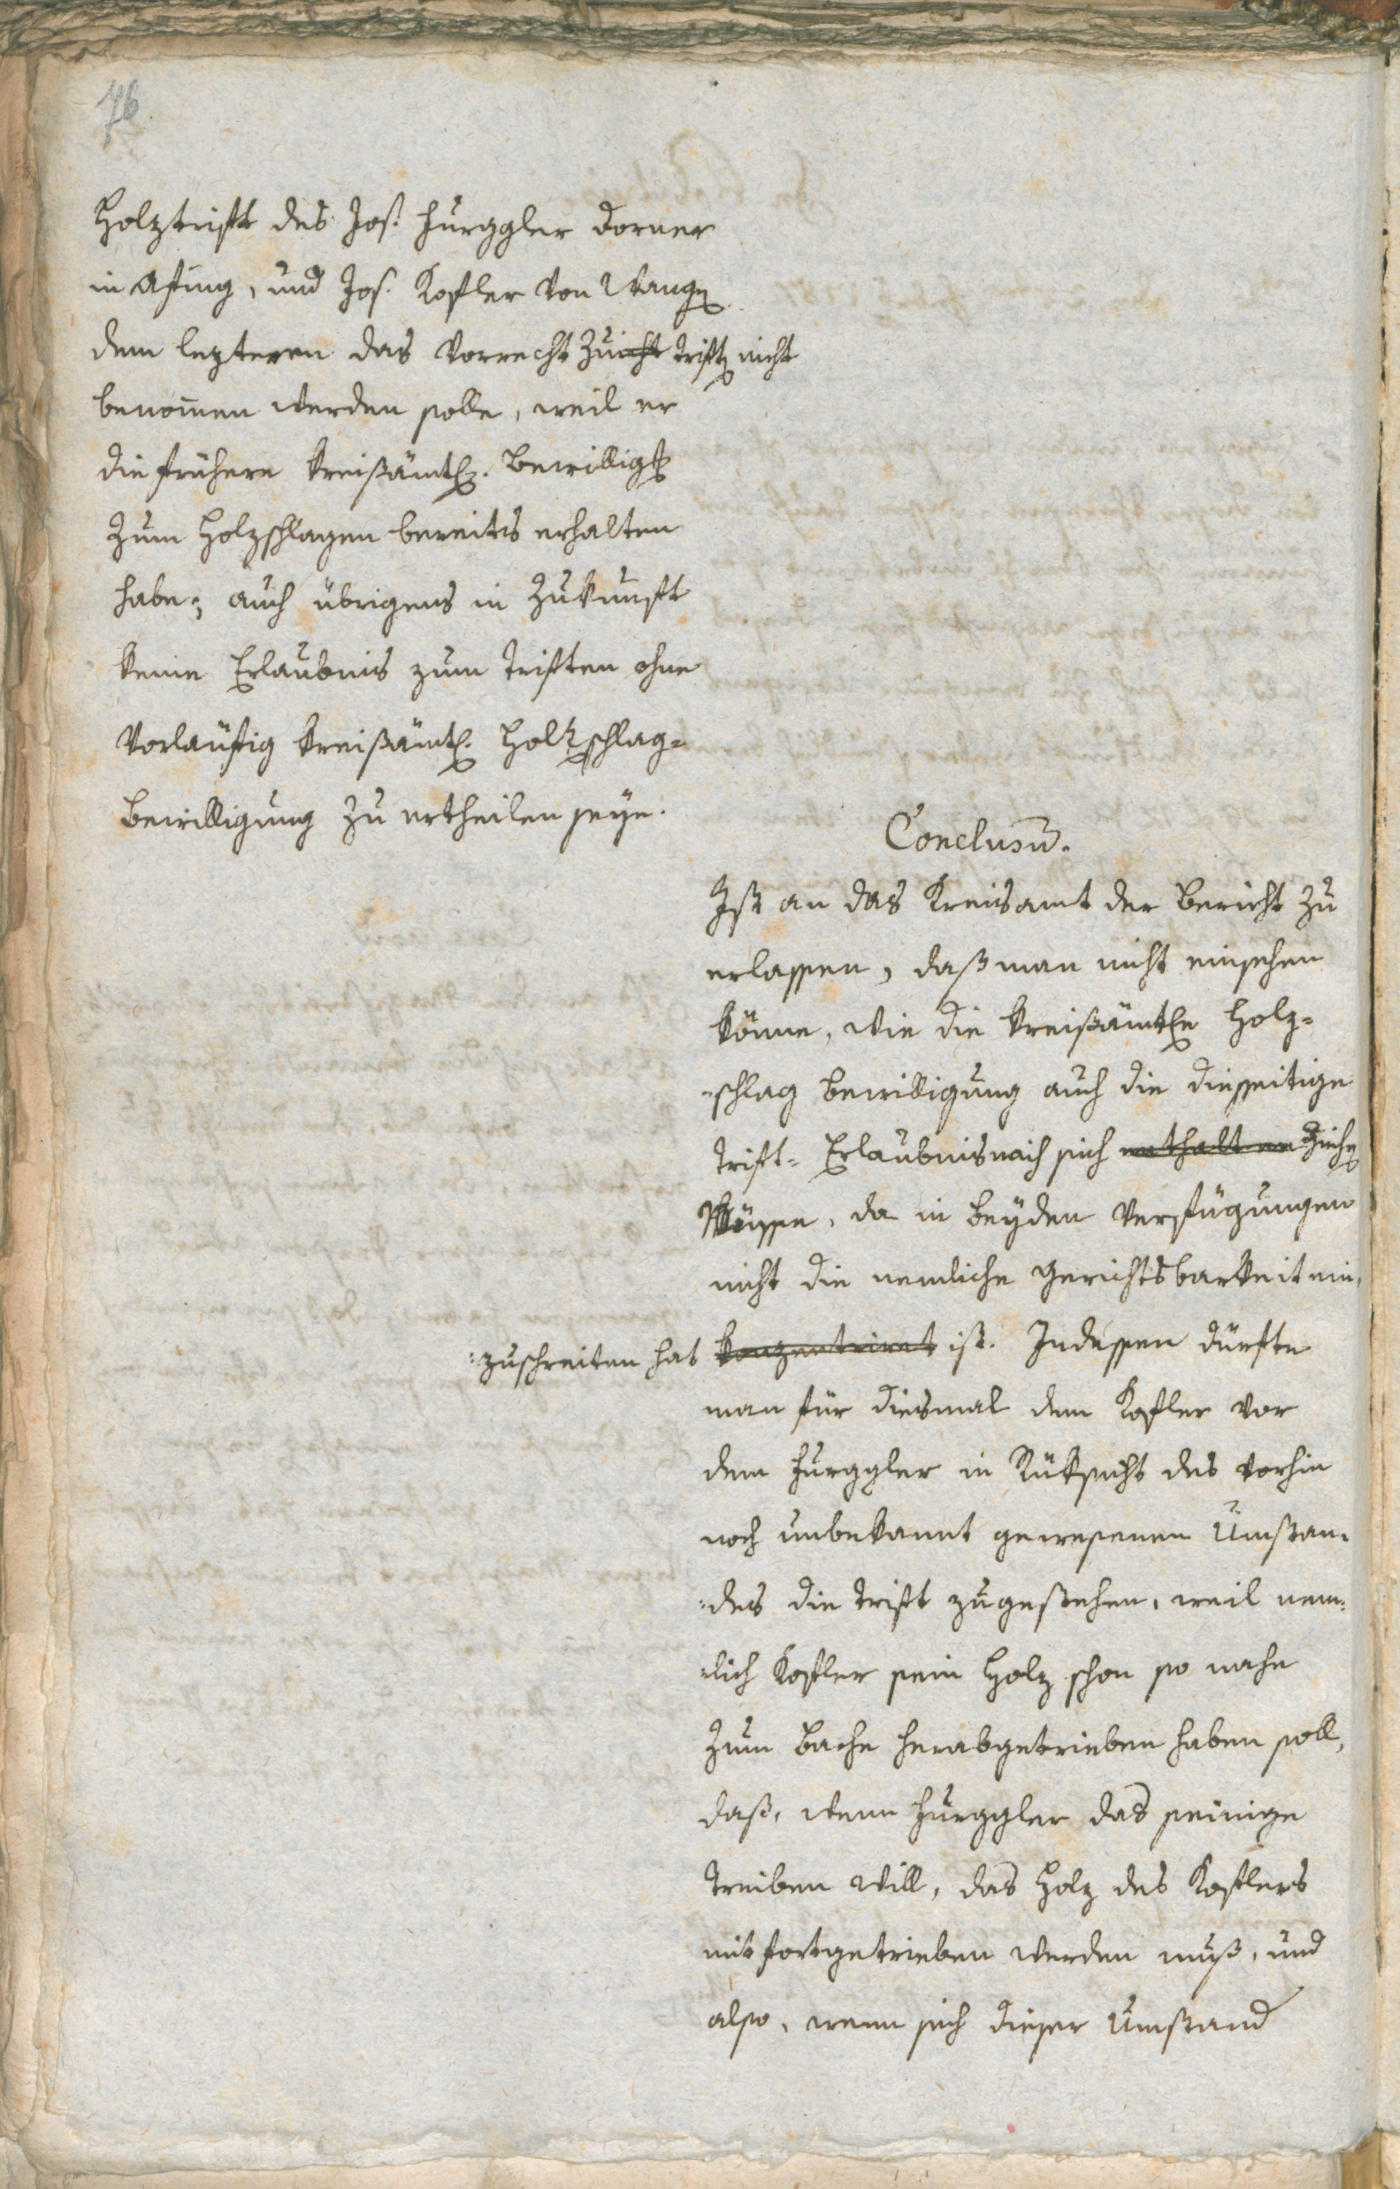 76
Holztrift des Jos. Hurggler Dorner
in Afing, und Jos. Kofler von Wangen
dem leztern das Vorrecht zu triften nicht
benommen werden solle, weil er
die frühere kreißämtl. Bewilligung
zum Holzschlagen bereits erhalten
habe; auch übrigens in Zukunft
keine Erlaubnis zum triften ohne
vorläufig kreißämtl. Holzschlag-
bewilligung zu ertheilen seye.
Conclusum.
Ist an das Kreisamt der Bericht zu
erlassen, daß man nicht einsehen
könne, wie die kreißämtle Holz-
-schlag Bewilligung auch die diesseitige
Trift-Erlaubnis nach sich enthalten ziehen
Müsse, da in beyden Verfügungen
nicht die nemliche Gerichtsbarkeit ein-
-zuschreiten hat konzentrirt ist. Indessen dürfte
man für diesmal dem Kofler vor
dem Hurggler in Rüksicht des vorhin
noch unbekannt gewesenen Umstan-
-des die Trift zugestehen, weil nem-
-lich Kofler sein Holz schon so nahe
zum Bache herabgetrieben haben soll,
daß, wenn Hurggler das seinige
treiben will, das Holz des Koflers
mit fortgetrieben werden muß, und
also, wenn sich dieser Umstand